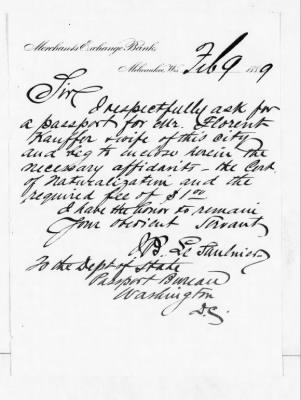 Merchants Exchange Bank
Milwaukee, Wis. Feb 9 1889
Sir
I respectfully ask for
a passport for our Florent
& wife of this City
and beg to enclose herein the
necessary affidavits - the Cert.
of Naturalization and the
required fee of $1 00
I have the honor to remain
Your Obedient Servant
J. B. Le Saulnier
To the Dept of State
Passport Bureau
Washington
D.C.